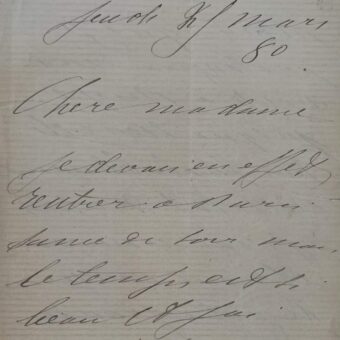 jeudi 25 mars
80
Chere madame
je devais en effet
rentrer a Paris
de mais
le temps est si
beau et j'ai